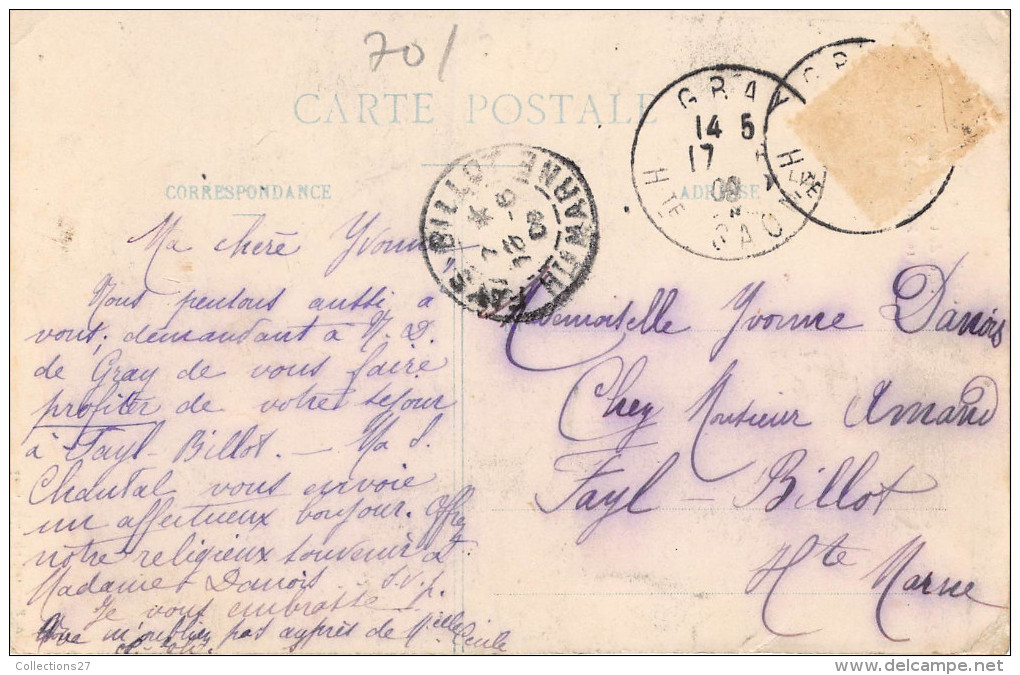 70/
CARTE POSTALE
CORRESPONDANCE
ADRESSE
GRAY
14 5
17
09
Hte SAONE
FAYS-BILLOT
16-9
09
HTE MARNE
Ma chère Yvonne,
Nous pensons aussi à
vous, demandant à N. D.
de Gray de vous faire
profiter de votre séjour
à Fayl-Billot. – Ma S.
Chantal vous envoie
un affectueux bonjour. Offrez
notre religieux souvenir à
Madame Danois. S.V.p.
Je vous embrasse
m'oubliez pas auprès de Melle Cécile
Mademoiselle Yvonne Danois
Chez Monsieur Amand
Fayl – Billot
Hte Marne
Collections27
www.delcampe.net